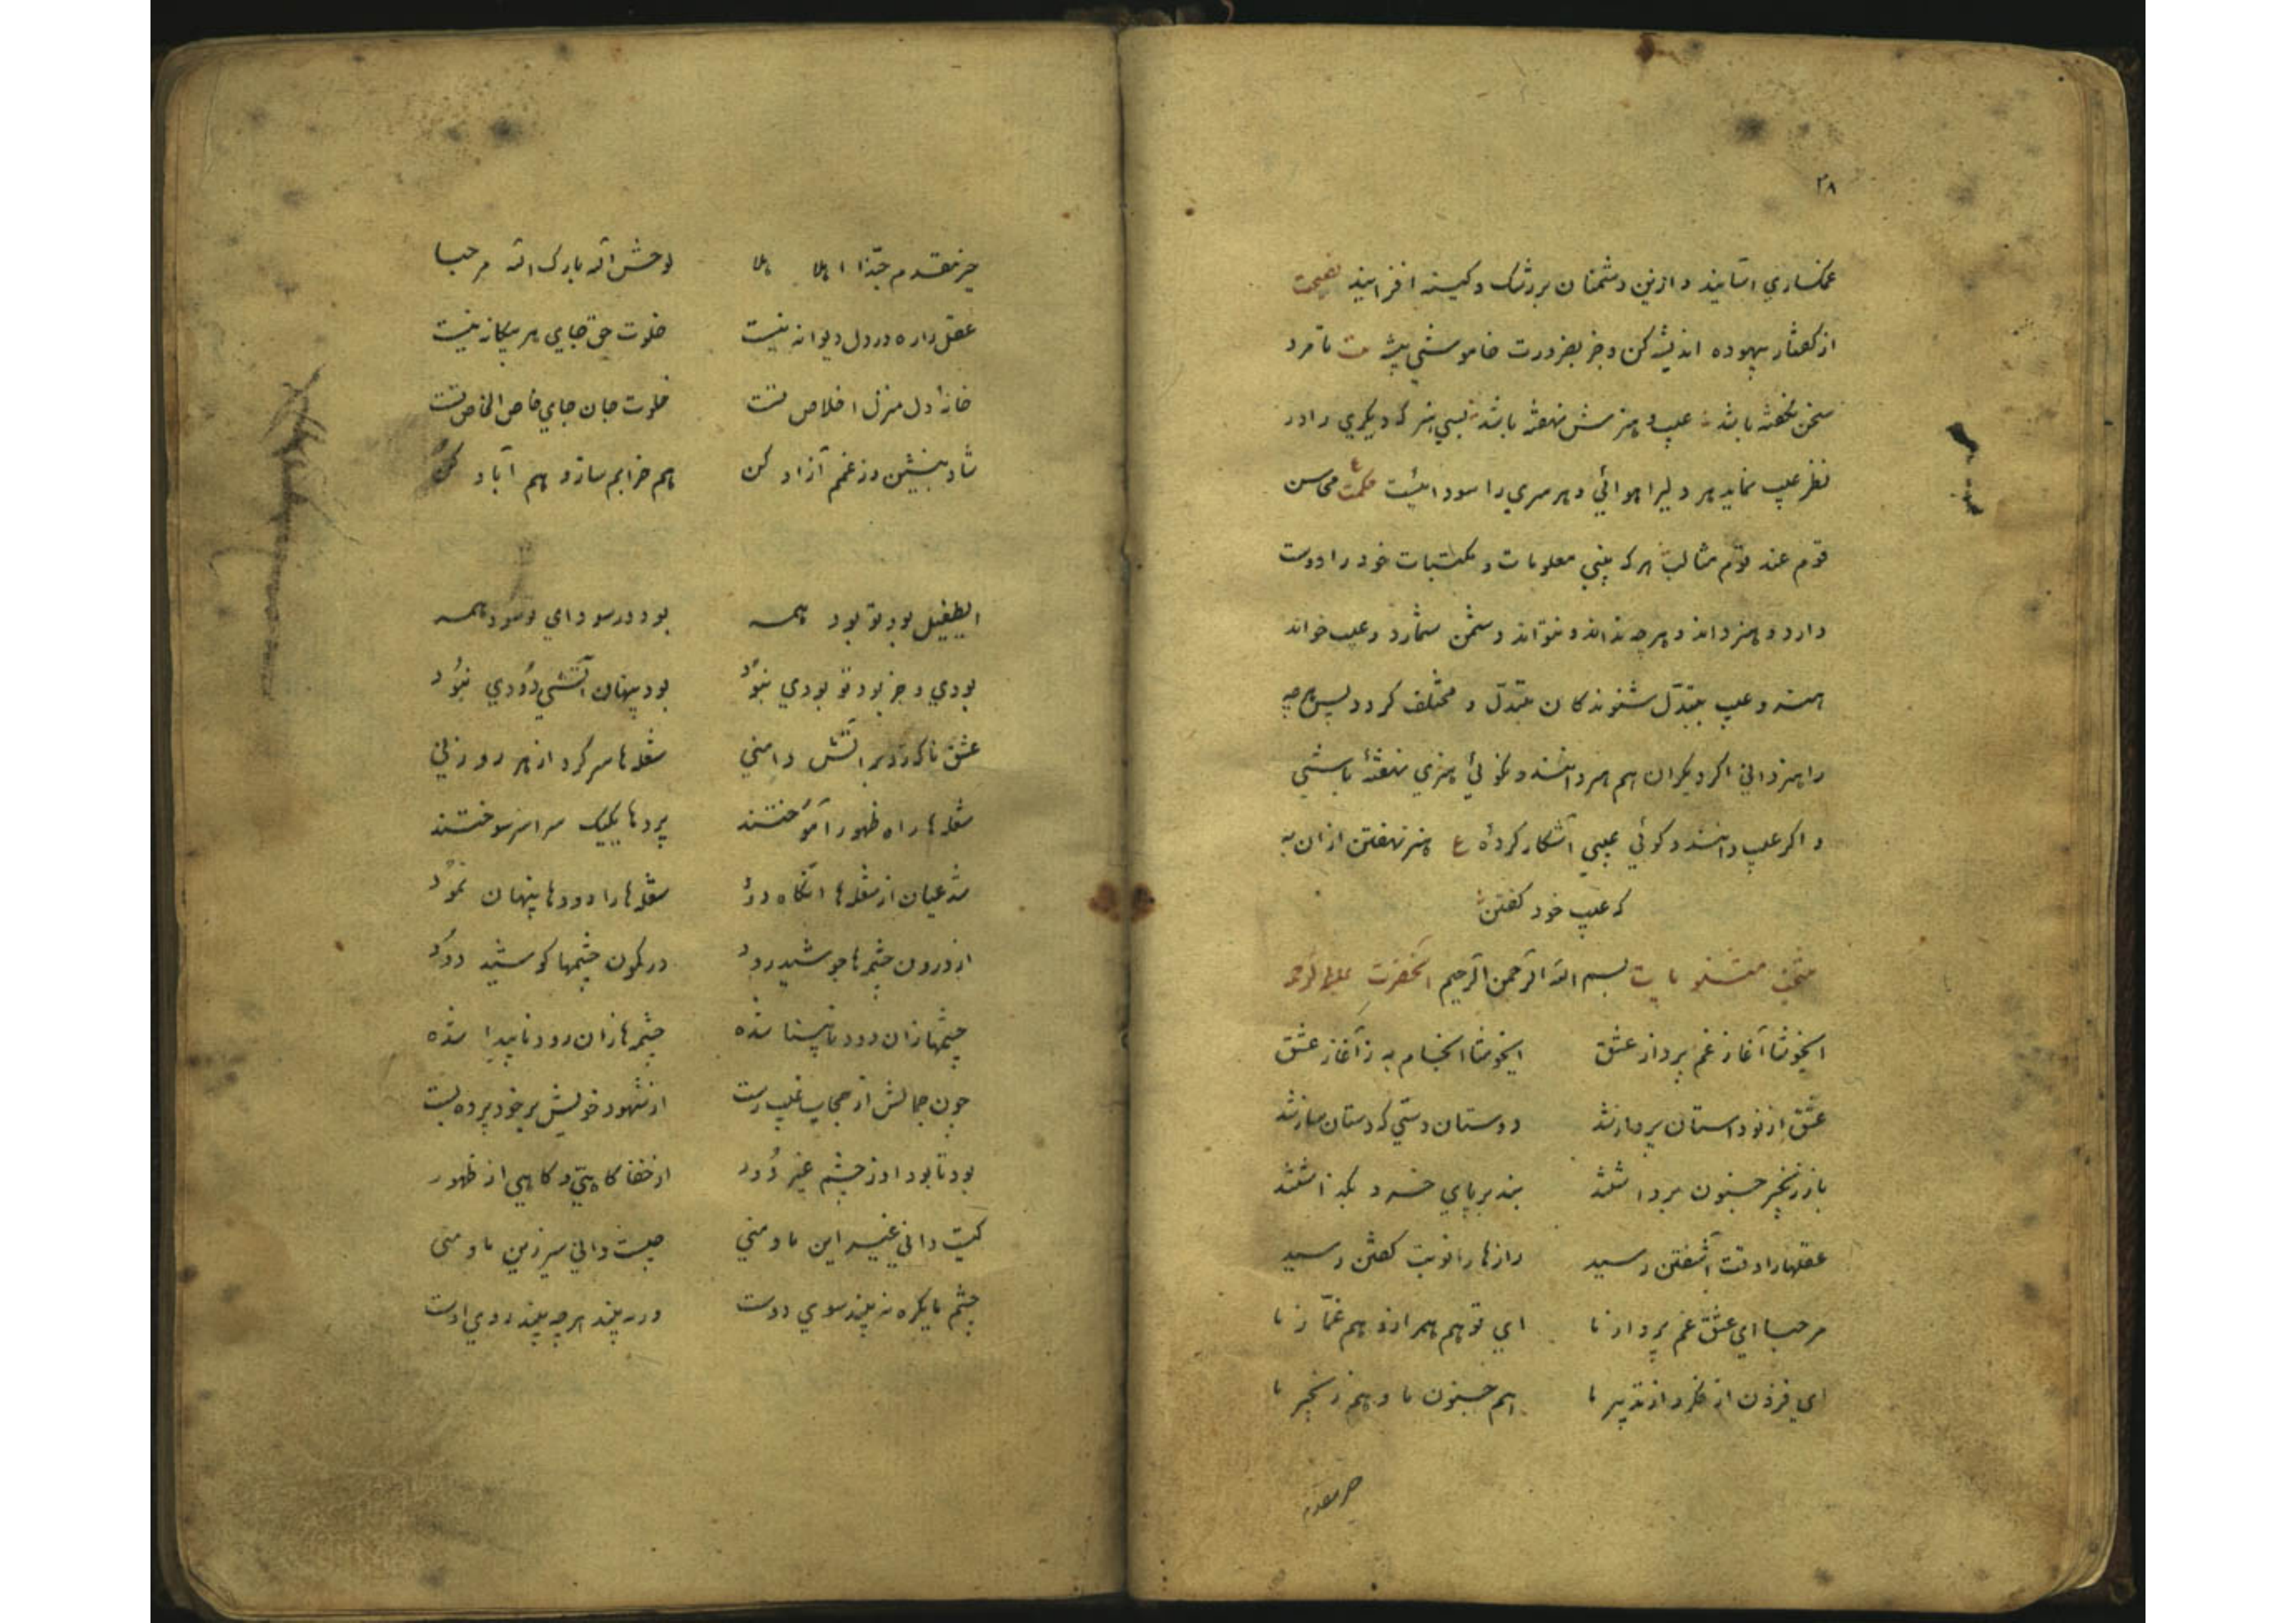 ۳۸
غمکساری استانید و ازین دشمنان بر رشک و کینه افزایند نصیحت
از کفتار بیهوده اندیشه کن و جز بضرورت خاموشی پیشه تا مرد
سخن نکفته باشد عیب و هنرش نهفته باشد بسی هنر که دیکری را در
نظر عیب نماید هر دلیرا هوائی و هر سری را سودائیست حکمت محاسن
قوم عند قوم مثالب هر که بینی معلومات و مکتسبات خود را دوست
دارد و هنر داند و هر چه نداند و نتواند دشمن شمارد و عیب خواند
هنر و عیب بتبدل شنوندکان متبدل و مختلف کردد پس هر چه
را هنر دانی اکر دیکران هم هنر دانند و نکوئی هنری نهفتهٔ باشی
و اکر عیب دانند و کوئی عیبی آشکار کردهٔ ع هنر نهفتن ازان به
که عیب خود کفتن
منتخب مثنویات بسم الله الرحمن الرحیم آنحضرت علیه الرحمه
ایخوشا آغاز غم پرداز عشق ایخوشا انجام به ز آغاز عشق
عشق از نو داستان پرداز شد دوستان دستی که دستان ساز شد
باز زنجیر جنون برداشتند بند بر پای خرد بکذاشتند
عقلها را وقت آشفتن رسید رازها را نوبت کفتن رسید
مرحبا ای عشق غم پرداز ما ای تو هم همراز و هم غمّاز ما
ای فزون از فکر و از تدبیر ما هم جنون ما و هم زنجیر ما
خیر مقدم
خیر مقدم حبّذا اهلا هلا لوحش الله بارک الله مرحبا
عقل را ره در دل دیوانه نیست خلوت حق جای هر بیکانه نیست
خانهٔ دل منزل اخلاص تست خلوت جان جای خاص الخاص تست
شاد بنشین وز غمم آزاد کن هم خرابم ساز و هم آباد کن
ایطفیل بود تو بود همه بود در سودای تو سود همه
بودی و جز بود تو بودی نبود بود پنهان آتشی دودی نبود
عشق ناکه زد بر آتش دامنی شعله ها سر کرد از هر روزنی
شعله ها راه ظهور آموختند پردها یکیک سراسر سوختند
شد عیان از شعله ها آنکاه دود شعله ها را دودها پنهان نمود
از درون چشمه ها جوشید رود در کمون چشمها کوشید دود
چشمها زان دود نابینا شده چشمه ها زان رود ناپیدا شده
چون جمالش از حجاب غیب رست از شهود خویش بر خود پرده بست
بود تا بود او ز چشم غیر دور از خفا کاهی و کاهی از ظهور
کیست دانی غیر این ما و منی چیست دانی سرّ زین ما و منی
چشم ما یکره نه بیند سوی دوست ورنه بیند هر چه بیند روی اوست